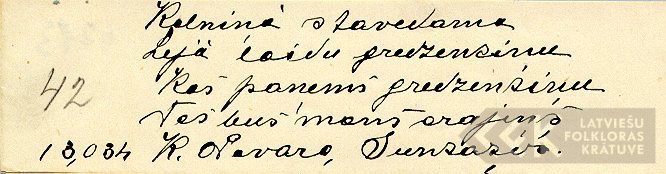 Kalninā stavedama
Lejā laidu gredzenšinu
42 Kaš panems gredzenšinu
Taš buš manš arajinš
13,034 K. Pavaro, Sunzašōs.
LATVIEŠU
FOLKLORAS
KRĀTUVE